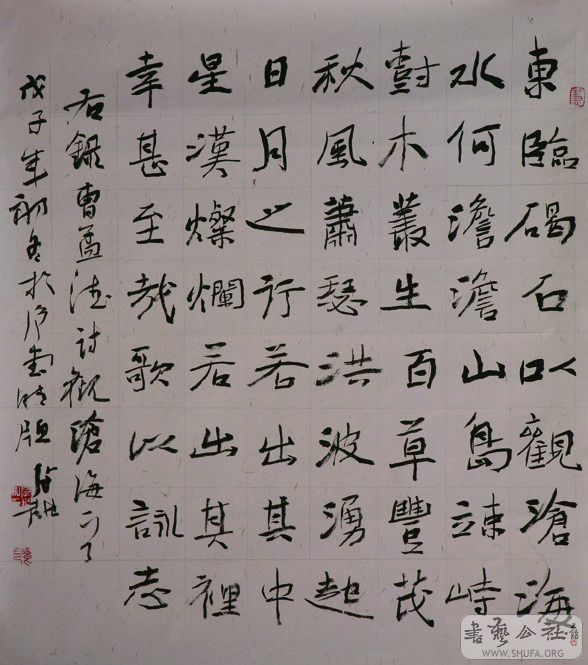 東臨碣石以觀滄海
水何澹澹山島竦峙
樹木叢生百草豐茂
秋風蕭瑟洪波湧起
日月之行若出其中
星漢燦爛若出其裡
幸甚至哉歌以詠志
右録曹孟德詩觀滄海一首
戊子年初冬於
書藝公社
WWW.SHUFA.ORG